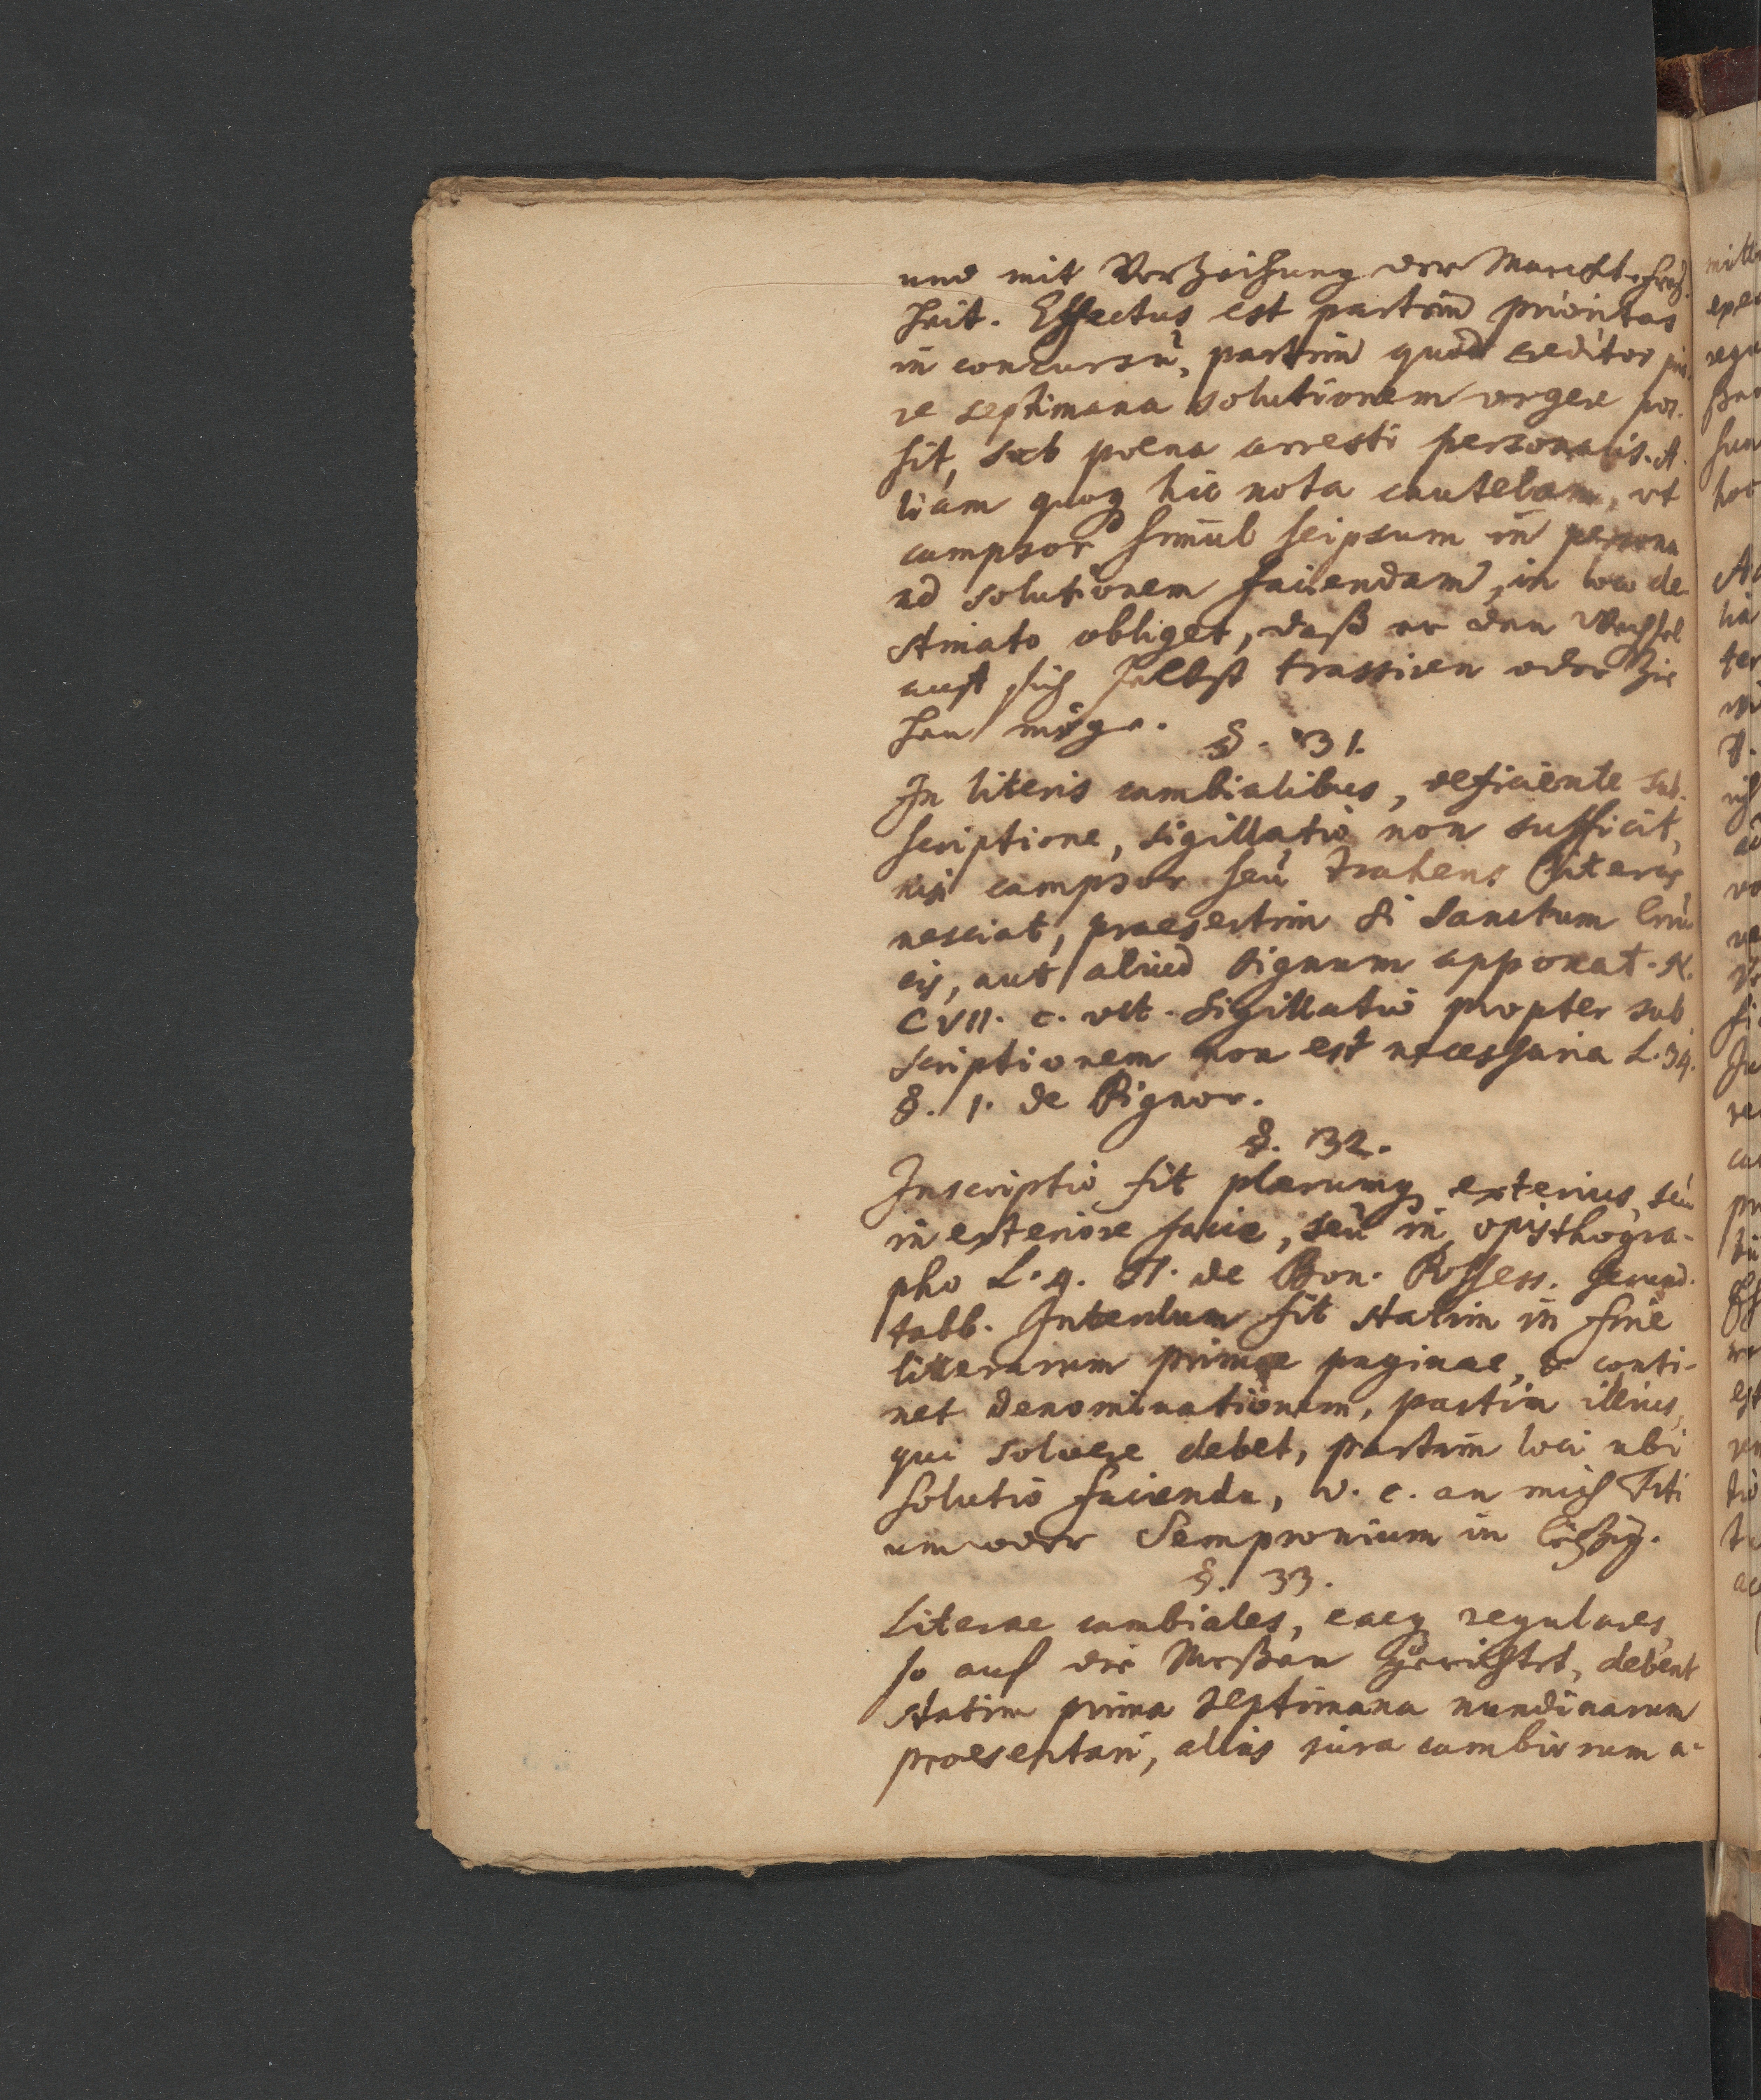 und mit Verzeihung der Marckt-Frey
heit. Effectus est partim prioritas
in concursu, partim quod creditor pri
re septimana solutionem urgere pos-
sit, sub poena arresti personalis. A
liam quoq hic nota cautelam, ut
campsor simul seipsum in persona
ad solutionem faciendam, in loco de-
stinato obliget, daß er den Wechsel
auf sich selbst trassiren oder zie
hen möge.
§. 31.
In literis cambialibus, deficiente sub-
scriptione, sigillatio non sufficit,
nisi campsor seu trahens literas
nesciat, praesertim si sanctum cru
cis, aut aliud signum apponat. N.
CVII. c. ult. Sigillatio propter sub
scriptionem non est necessaria L. 34.
§. 1. de Pignor.
§. 32.
Inscriptio fit plerumq exterius, seu
in exteriore facie, seu in opisthogra-
pho L. 4. ff. de Bon. Possess. secund.
tabb. Interdum fit statim in fine
litterarum primae paginae, & conti-
net denominationem, partim illius,
qui solvere debet, partim loci ubi
solutio facienda, v. c. an mich Titi
um oder Sempronium in Leipzig.
§. 33.
Literae cambiales, eaeq regulares,
so auf die Meßen gerichtet, debent
statim prima septimana nundinarum
praesentari, alias jura cambiorum a-